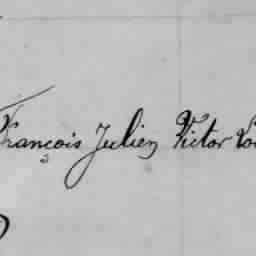 François Julien Victor